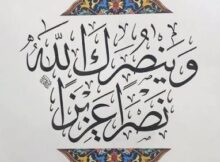 وَيَنصُرَكَ اللَّهُ
نَصْرًا عَزِيزًا